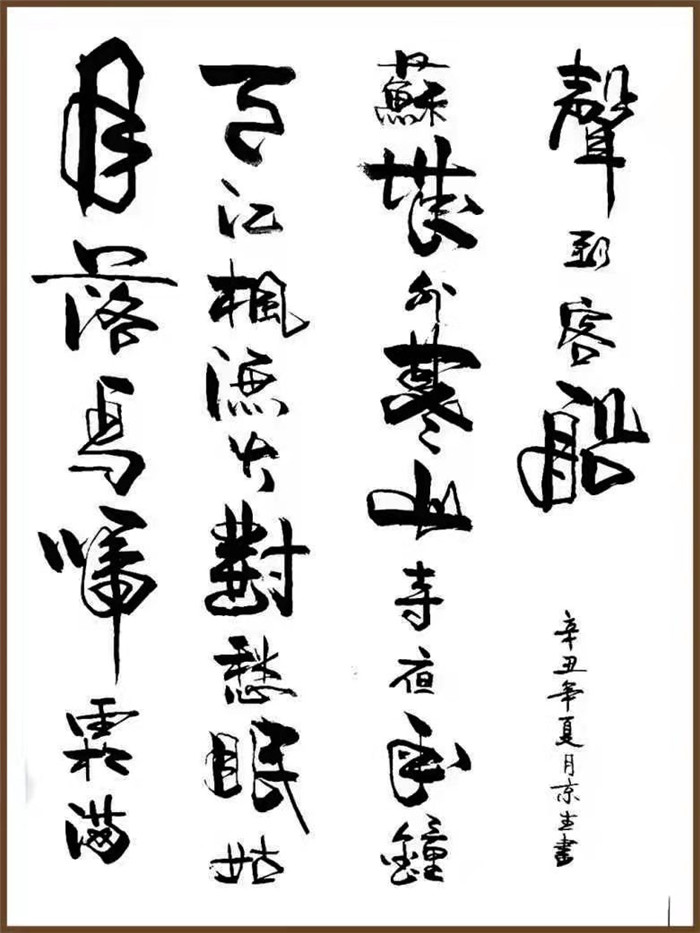 月落烏啼霜滿
天江楓漁火對愁眠姑
蘇城外寒山寺夜半鐘
聲到客船
辛丑年夏月京生書